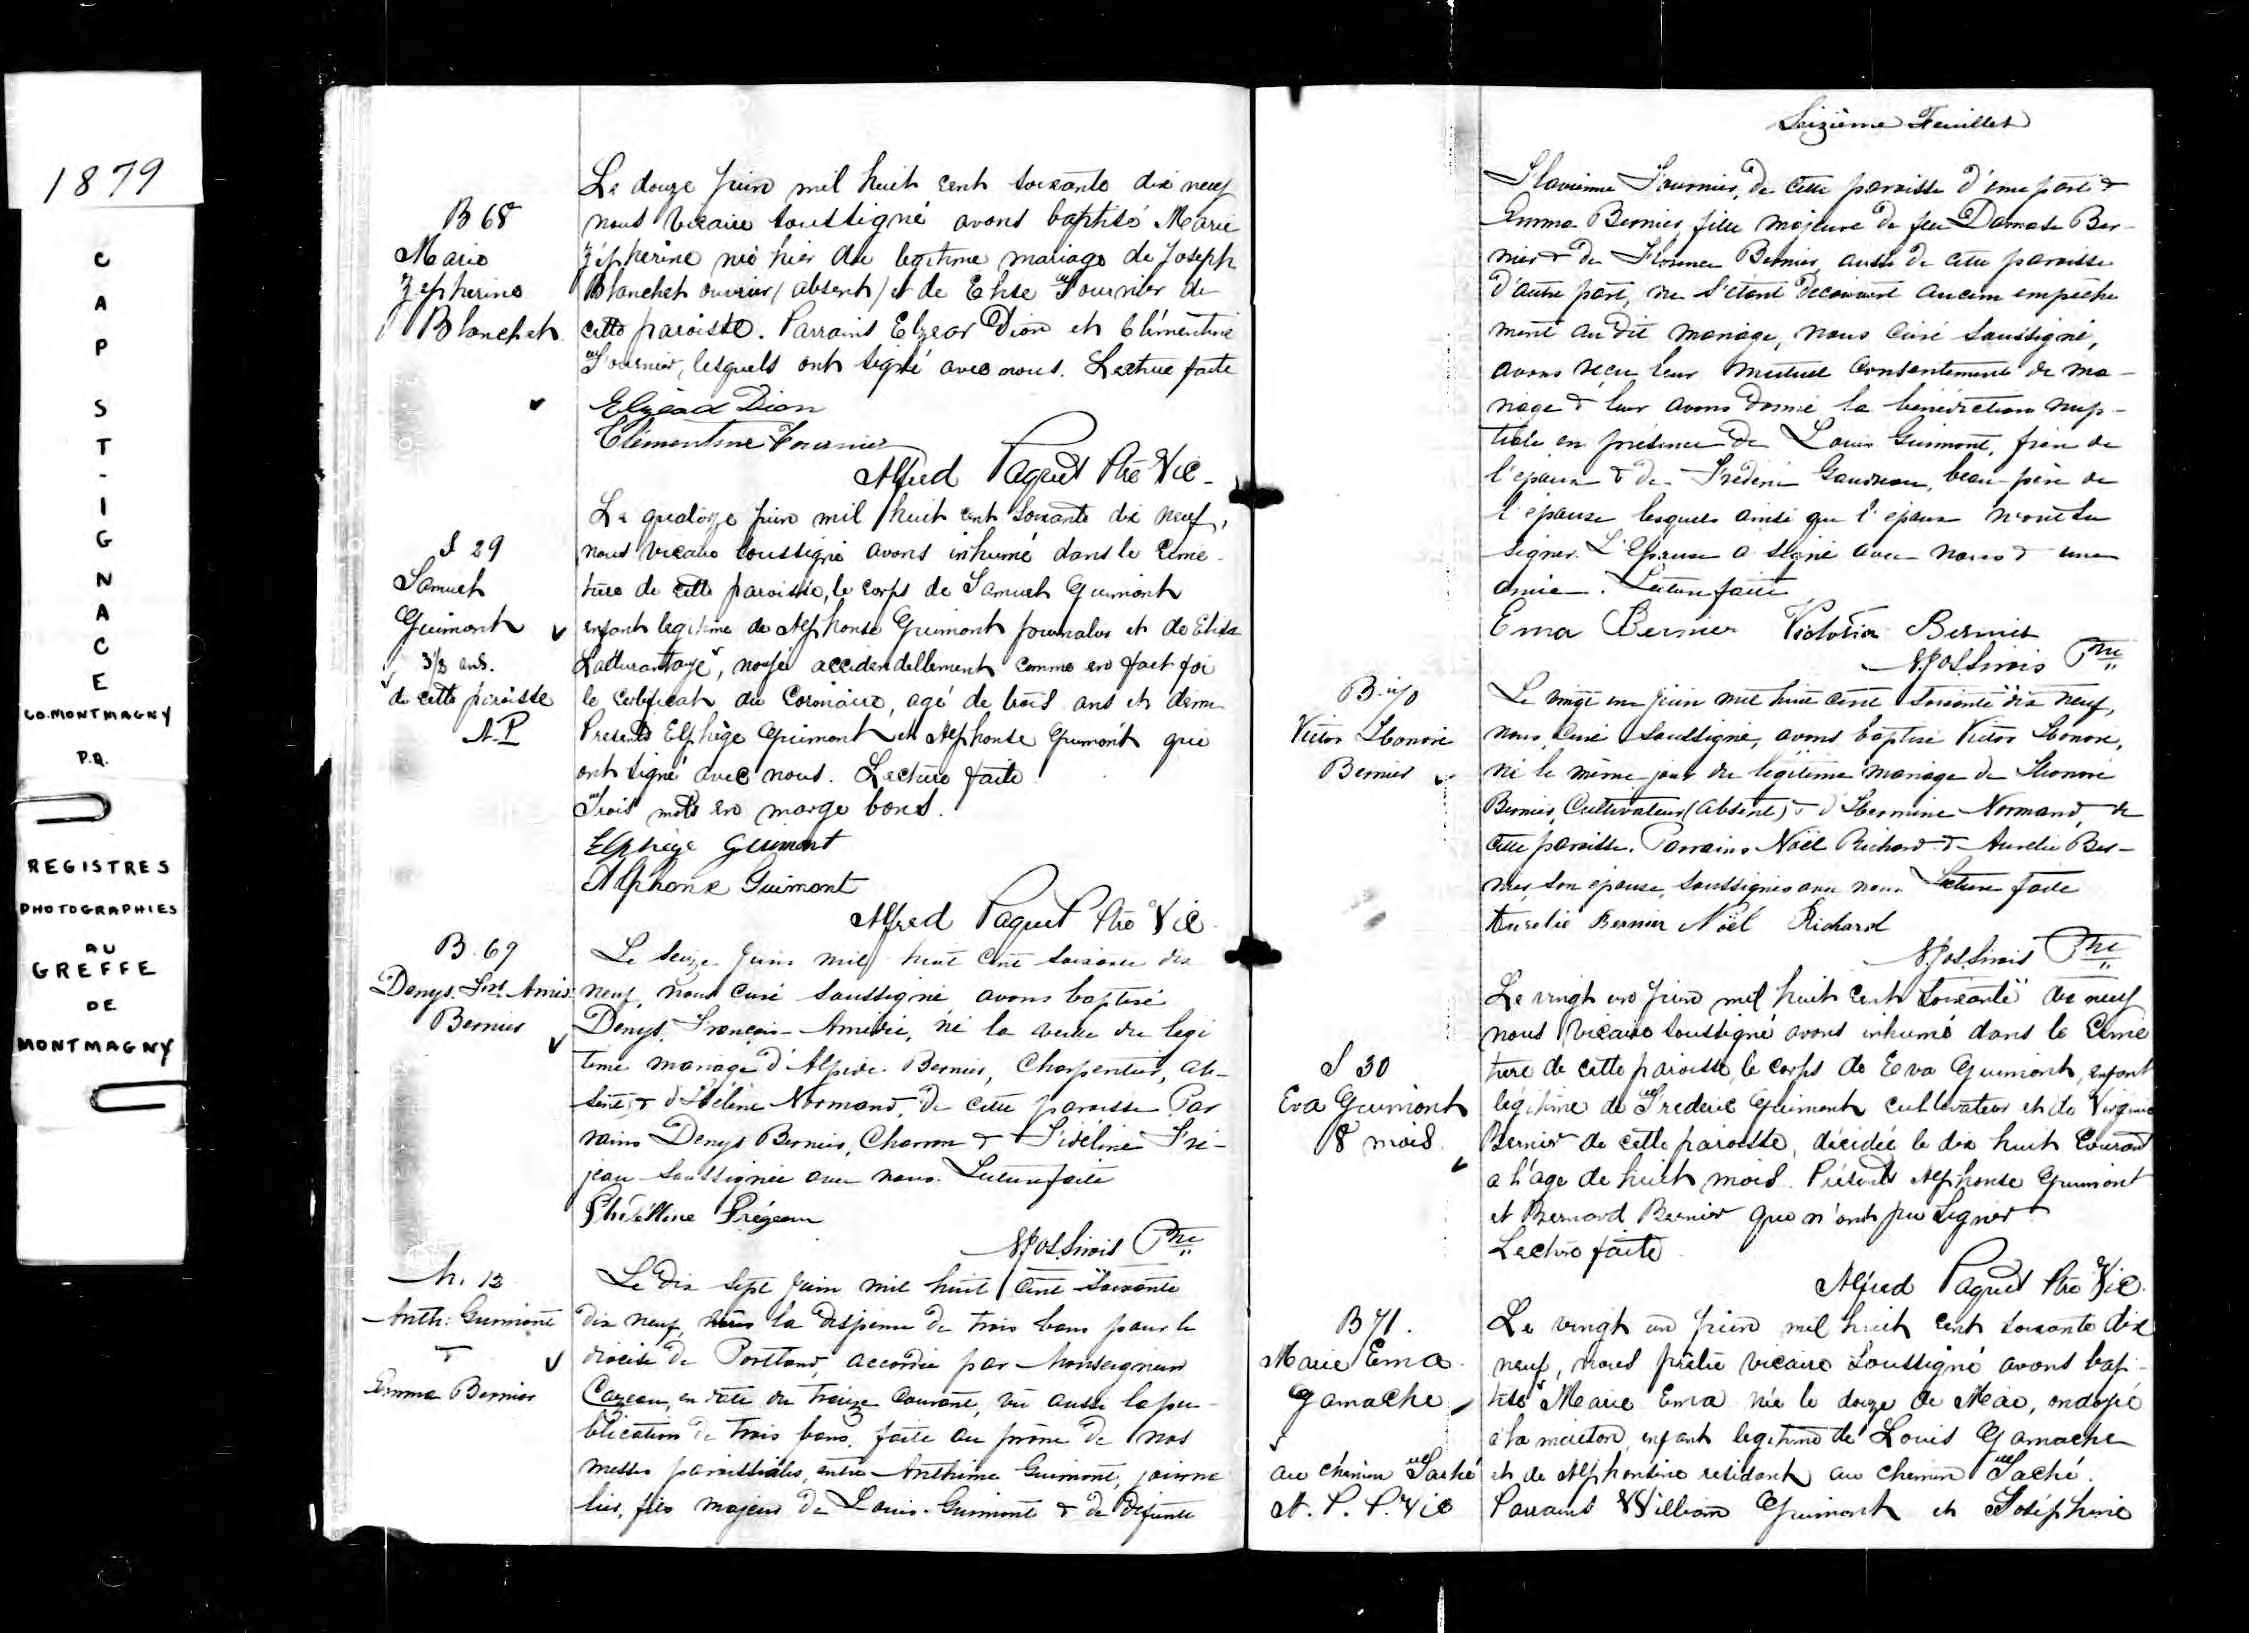 1879
CAP ST-IGNACE
CO. MONTMAGNY
P.Q.
REGISTRES
PHOTOGRAPHIES
AU
GREFFE
DE
MONTMAGNY
B 68
Marie
Zepherine
Blanchet
Le douze juin mil huit cent soixante dix neuf
nous vicaire soussigné avons baptisé Marie
Zéphérine née hier du legitime mariage de Joseph
Blanchet ouvrier (absent) et de Elise Fournier de
cette paroisse. Parrains Elzear Dion et Clémentine
Fournier, lesquels ont signé avec nous. Lecture faite
Elzéar Dion
Clémentine Fournier
Alfred Paquet Ptre Vic
S 29
Samuel
Guimont
3½ ans.
de cette paroisse
A.P
Le quatorze juin mil huit cent soixante dix neuf,
nous vicaire soussigné avons inhumé dans le cime-
tière de cette paroisse, le corps de Samuel Guimont
enfant legitime de Alphonse Guimont journalier et de Elisa
, noyé accidentellement comme en fait foi
le certificat du Coronaire, agé de trois ans et demi
Presents Elphège Guimont et Alphonse Guimont qui
ont signé avec nous. Lecture faite.
Trois mots en marge bons.
Elphège Guimont
Alphonse Guimont
Alfred Paquet Ptre Vic
B. 69
Denys. Frs. Amée
Bernier
Le seize juin mil huit cent soixante dix
neuf, nous curé soussigné avons baptisé
Denys François Amédée, né la veille du legi
time mariage d'Alpide Bernier, Charpentier, ab-
sent & d'Hélène Normand, de cette paroisse Par
rains Denys Bernier, Charron & Fidéline Fré-
jeau soussignée avec nous. Lecture faite
Phidéline Frégeau
N. Jos. Sirois Ptre
M. 13
Anth: Guimont
&
Emma Bernier
Le dix sept juin mil huit cent soixante
dix neuf, vu la dispense de trois bans pour le
diocèse de Portland, accordée par Monseigneur
Cazeau, en date du treize courant, vu aussi la pu-
blication de trois bans faite au prône de nos
messes paroissiales, entre Anthime Guimont, journa
lier, fils majeur de Louis Guimont & de défunte
Seizième Feuillet
Flavienne Fournier, de cette paroisse d'une part &
Emma Bernier, fille majeure de feu Damase Ber-
nier & de Florence Bernier, aussi de cette paroisse
d'autre part, ne s'étant découvert aucun empêche
ment au dit mariage, nous curé soussigné,
avons reçu leur mutuel consentement de ma-
riage & leur avons donné la bénédiction nup-
tiale en présence de Louis Guimont, frère de
l'époux & de Fréderic Gaudreau, beau-père de
l'épouse lesquels ainsi que l'époux n'ont su
signer. L'Epouse a signé avec nous & une
amie. Lecture faite
Ema Bernier Victoria Bernier
N. Jos. Sirois Ptre
B. 70
Victor Honoré
Bernier
Le vingt un juin mil huit cent soixante dix neuf,
nous, curé soussigné, avons baptisé Victor Honoré,
né le même jour du légitime mariage de Honoré
Bernier, Cultivateur (absent) & d'Hermine Normand, de
cette paroisse. Parrains Noël Richard & Aurelie Ber-
nier son épouse, soussignés avec nous. Lecture faite
Aurelie Bernier Noël Richard
N. Jos. Sirois Ptre
S 30
Eva Guimont
8 mois
Le vingt un juin mil huit cent soixante dix neuf
nous vicaire soussigné avons inhumé dans le cime
tière de cette paroisse, le corps de Eva Guimont, enfant
légitime de Frederic Guimont cultivateur et de Virginie
Bernier de cette paroisse, décédée le dix huit courant
a l'age de huit mois. Présents Alphonse Guimont
et Bernard Bernier qui n'ont pu signer
Lecture faite
Alfred Paquet Ptre Vic.
B 71.
Marie Ema
Gamache
au chemin Taché
A. P. P. Vic
Le vingt un juin mil huit cent soixante dix
neuf, nous prêtre vicaire soussigné avons bap-
tisé Marie Ema née le douze de Mai, ondoyé
à la maison, enfant legitime de Louis Gamache
et de Alphonsine résidant au chemin Taché.
Parrains William Guimont et Joséphine